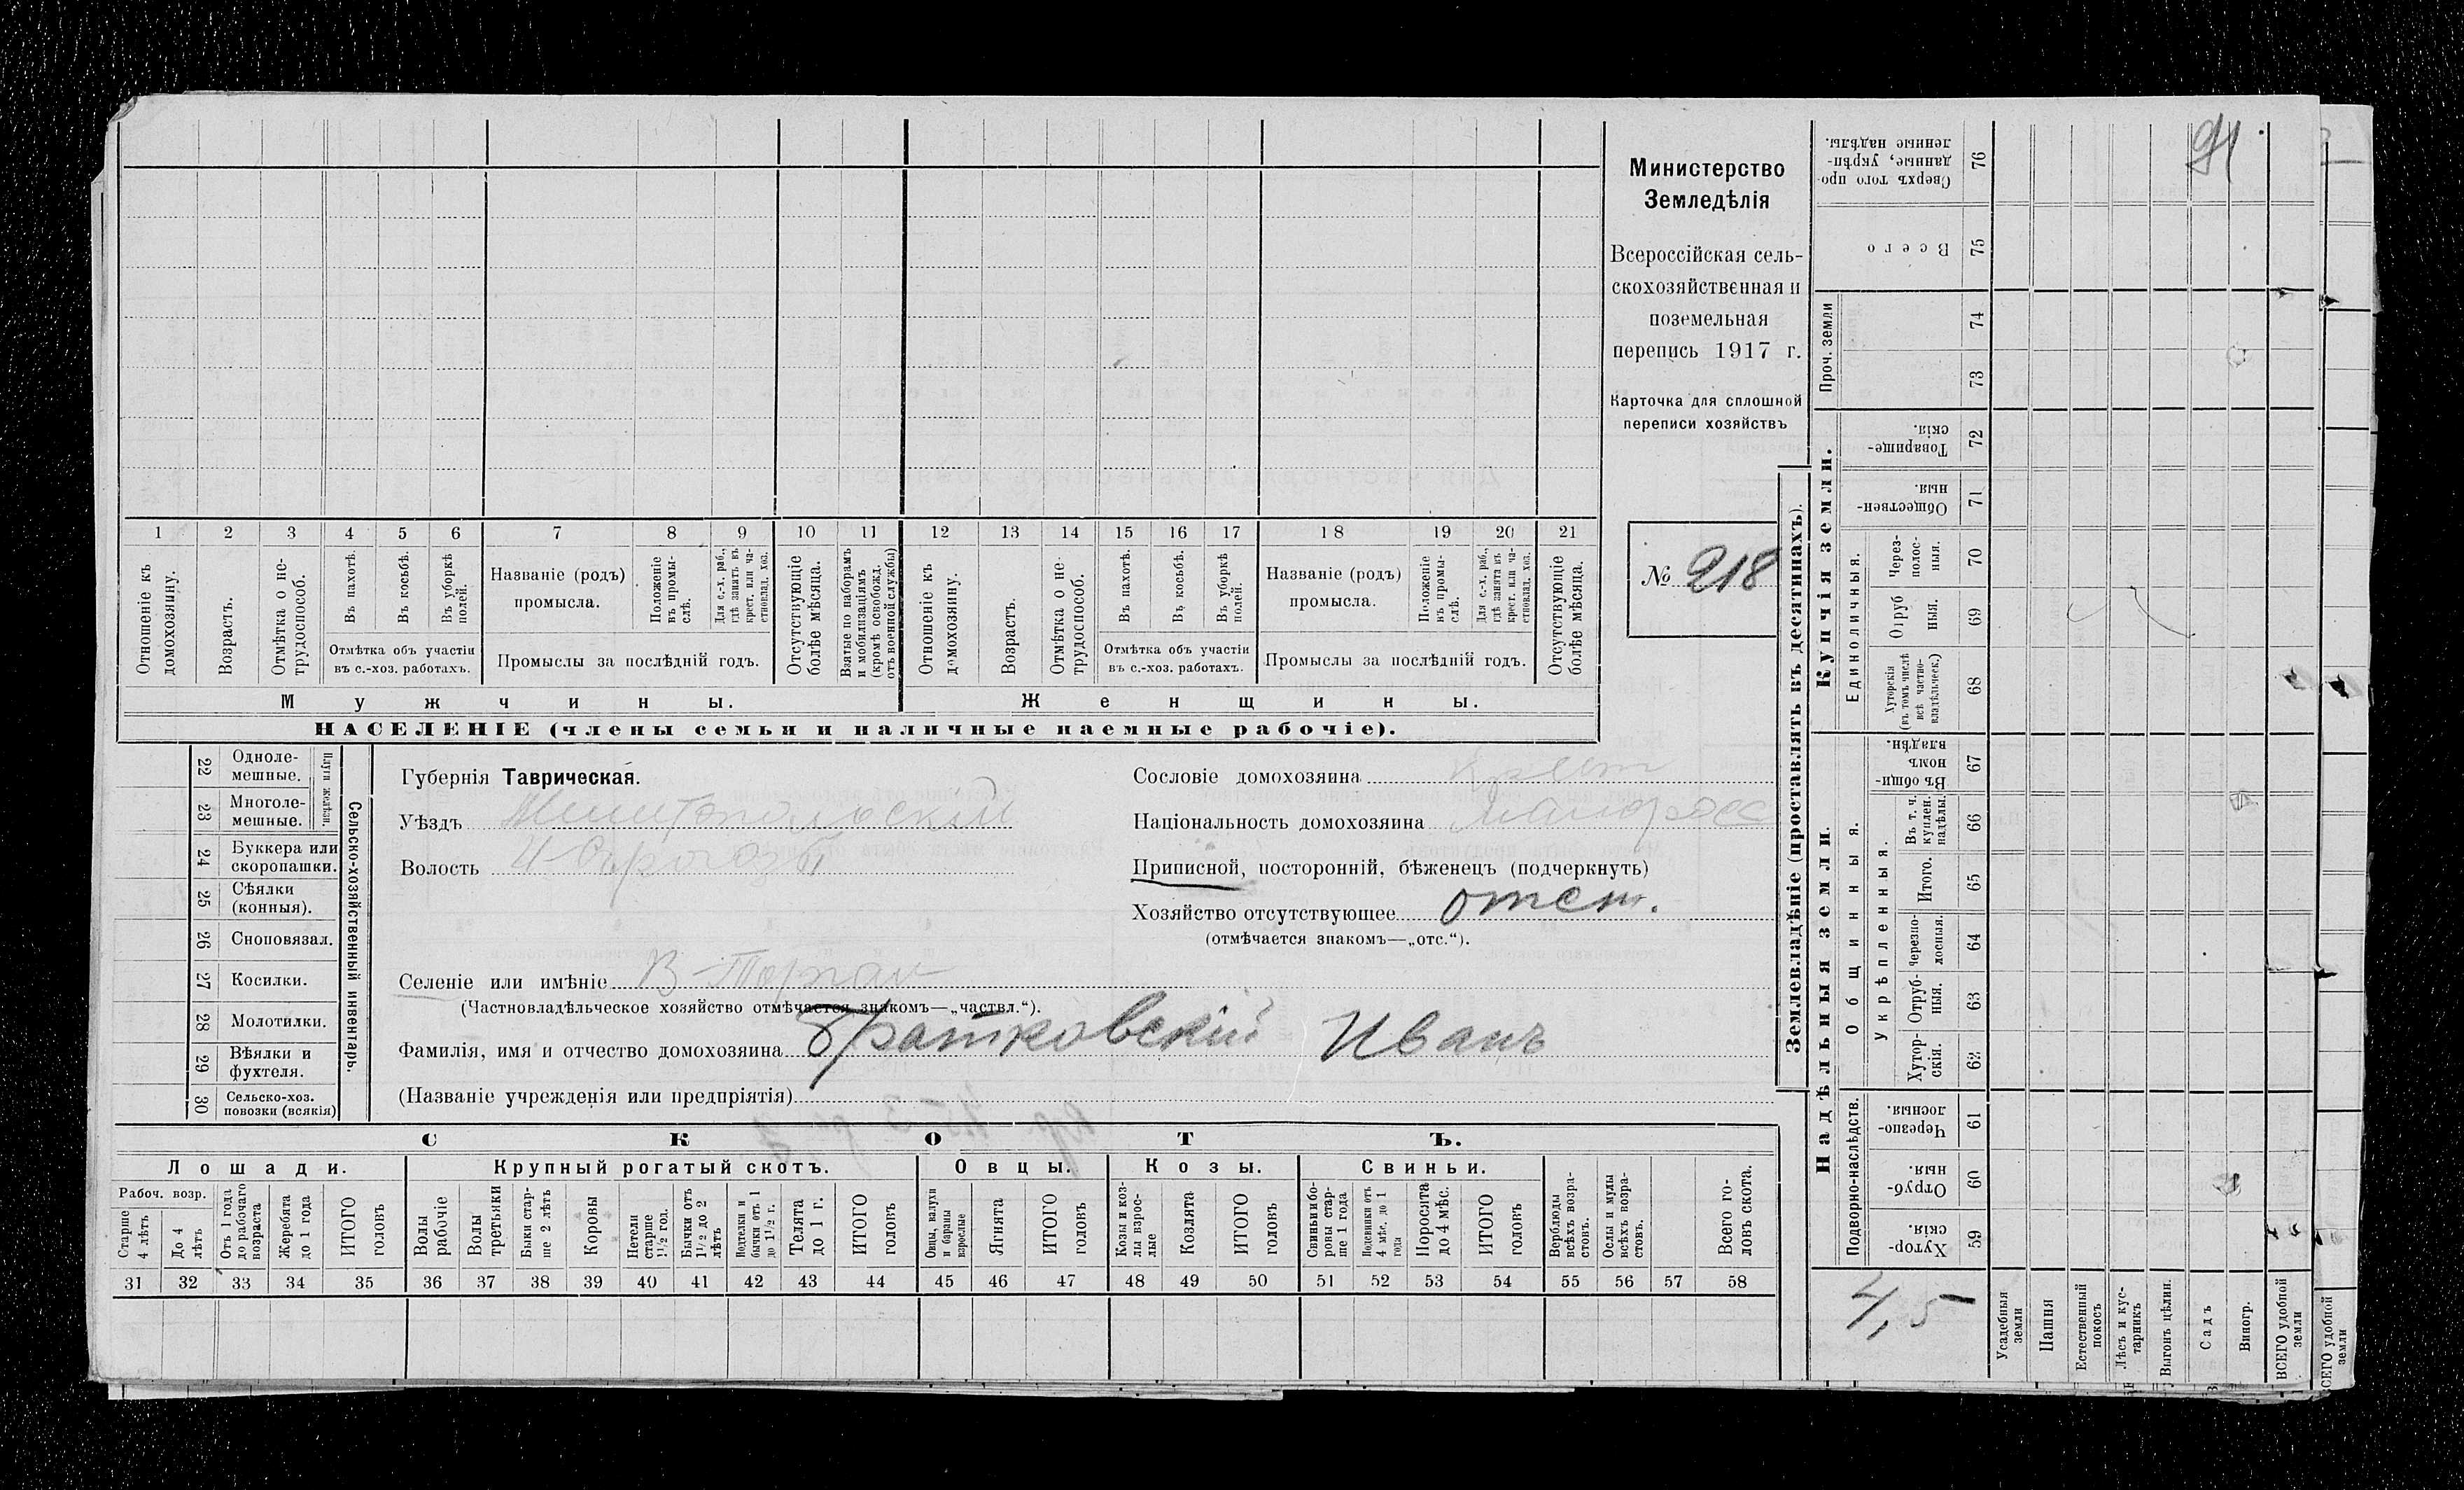 91.
Министерство
Земледѣлія
Всероссійская сель-
скохозяйственная и
поземельная
перепись 1917 г.
Карточка для сплошной
переписи хозяйствъ
№ 218
1 2 3 4 5 6 7 8 9 10 11 12 13 14 15 16 17 18 19 20 21
Отношеніе къ домохозяину.
Возрастъ.
Отмѣтка о не-
трудоспособ.
Въ пахотѣ.
Въ косьбѣ.
Въ уборкѣ
полей.
Отмѣтка объ участіи
въ с.-хоз. работахъ.
Названіе (родъ)
промысла.
Положеніе
въ промы-
слѣ.
Для с.-х. раб.,
гдѣ занятъ въ
крест. или ча-
стновлад. хоз.
Промыслы за послѣдній годъ.
Отсутствующіе
болѣе мѣсяца.
Взятые по наборамъ
и мобилизаціямъ
(кромѣ освобожд.
отъ военной службы)
Отношеніе къ
домохозяину.
Возрастъ.
Отмѣтка о не-
трудоспособ.
Въ пахотѣ.
Въ косьбѣ.
Въ уборкѣ
полей.
Отмѣтка объ участіи
въ с.-хоз. работахъ.
Названіе (родъ)
промысла.
Положеніе
въ промы-
слѣ.
Для с.-х. раб.,
гдѣ занята въ
крест. или ча-
стновлад. хоз.
Промыслы за послѣдній годъ.
Отсутствующіе
болѣе мѣсяца.
Мужчины.
Женщины.
НАСЕЛЕНІЕ (члены семьи и наличные наемные рабочіе).
22 Одноле-
мешные.
23 Многоле-
мешные.
24 Буккера или
скоропашки.
25 Сѣялки
(конныя).
26 Сноповязал.
27 Косилки.
28 Молотилки.
29 Вѣялки и
фухтеля.
30 Сельско-хоз.
повозки (всякія)
Плуги желѣзн.
Сельско-хозяйственный инвентарь.
Губернія Таврическая.
Уѣздъ Мелитопольскій
Волость Н Серогозы
Селеніе или имѣніе В-Торгаи
(Частновладѣльческое хозяйство отмѣчается знакомъ—„частвл.“).
Фамилія, имя и отчество домохозяина Братковскій Иванъ
(Названіе учрежденія или предпріятія)
Сословіе домохозяина крест
Національность домохозяина малоросс
Приписной, посторонній, бѣженецъ (подчеркнуть)
Хозяйство отсутствующее отсут.
(отмѣчается знакомъ—„отс.“).
СКОТЪ.
Лошади.
Крупный рогатый скотъ.
Овцы.
Козы.
Свиньи.
Рабоч. возр.
Старше
4 лѣтъ
До 4
лѣтъ
Отъ 1 года
до рабочаго
возраста
Жеребята
до 1 года
ИТОГО
головъ
Волы
рабочіе
Волы
третьяки
Быки стар-
ше 2 лѣтъ
Коровы
Нетели
старше
1½ год.
Бычки отъ
1½ до 2
лѣтъ
Подтелки и
бычки отъ 1
до 1½ г.
Телята
до 1 г.
ИТОГО
головъ
Овцы, валухи
и бараны
взрослые
Ягнята
ИТОГО
головъ
Козы и коз-
лы взрос-
лые
Козлята
ИТОГО
головъ
Свиньи и бо-
ровы стар-
ше 1 года
Подсвинки отъ
4 мѣс. до 1
года
Поросята
до 4 мѣс.
ИТОГО
головъ
Верблюды
всѣхъ возра-
стовъ.
Ослы и мулы
всѣхъ возра-
стовъ.
Всего го-
ловъ скота.
31 32 33 34 35 36 37 38 39 40 41 42 43 44 45 46 47 48 49 50 51 52 53 54 55 56 57 58
Землевладѣніе (проставлять въ десятинахъ).
Купчія земли.
Надѣльныя земли.
Сверхъ того про-
данные, укрѣп-
ленные надѣлы.
76
Всего
75
Проч. земли
74
73
Товарище-
скія.
72
Обществен-
ныя.
71
Единоличныя.
Через-
полос-
ныя.
70
Отруб
ныя.
69
Хуторскія
(въ томъ числѣ
всѣ частно-
владѣльческ.)
68
Общинныя.
Въ общи-
номъ
владѣн.
67
Укрѣпленныя.
Въ т. ч.
куплен.
надѣлы.
66
Итого.
65
Черезпо-
лосныя.
64
Отруб-
ныя.
63
Хутор-
скія.
62
Подворно-наслѣдств.
Черезпо-
лосныя.
61
Отруб-
ныя.
60
Хутор-
скія.
59
4,5
Усадебныя
земли
Пашня
Естественный
покосъ
Лѣсъ и кус-
тарникъ
Выгонъ цѣлин.
Садъ
Виногр.
ВСЕГО удобной
земли
СЕГО удобной
земли